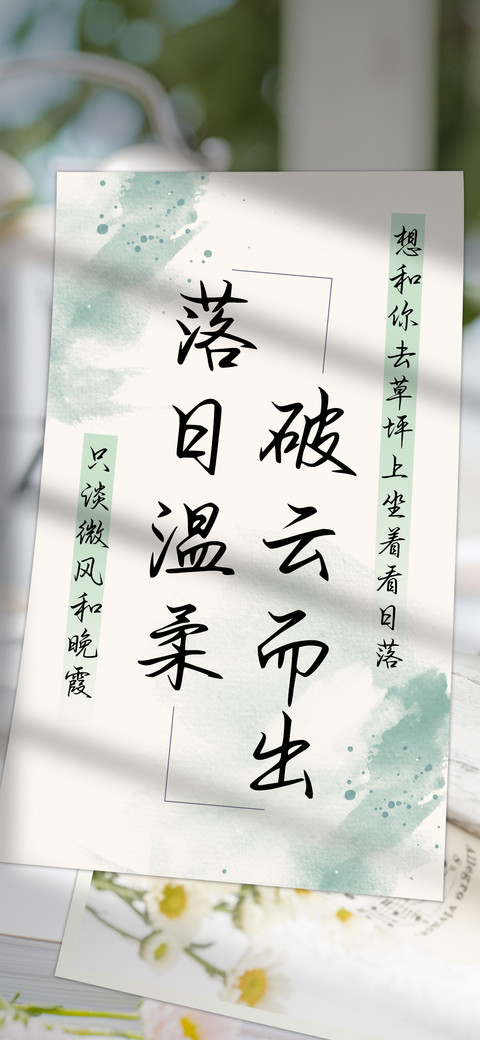 想和你去草坪上坐着看日落
破云而出
落日温柔
只谈微风和晚霞
Allegro vivace